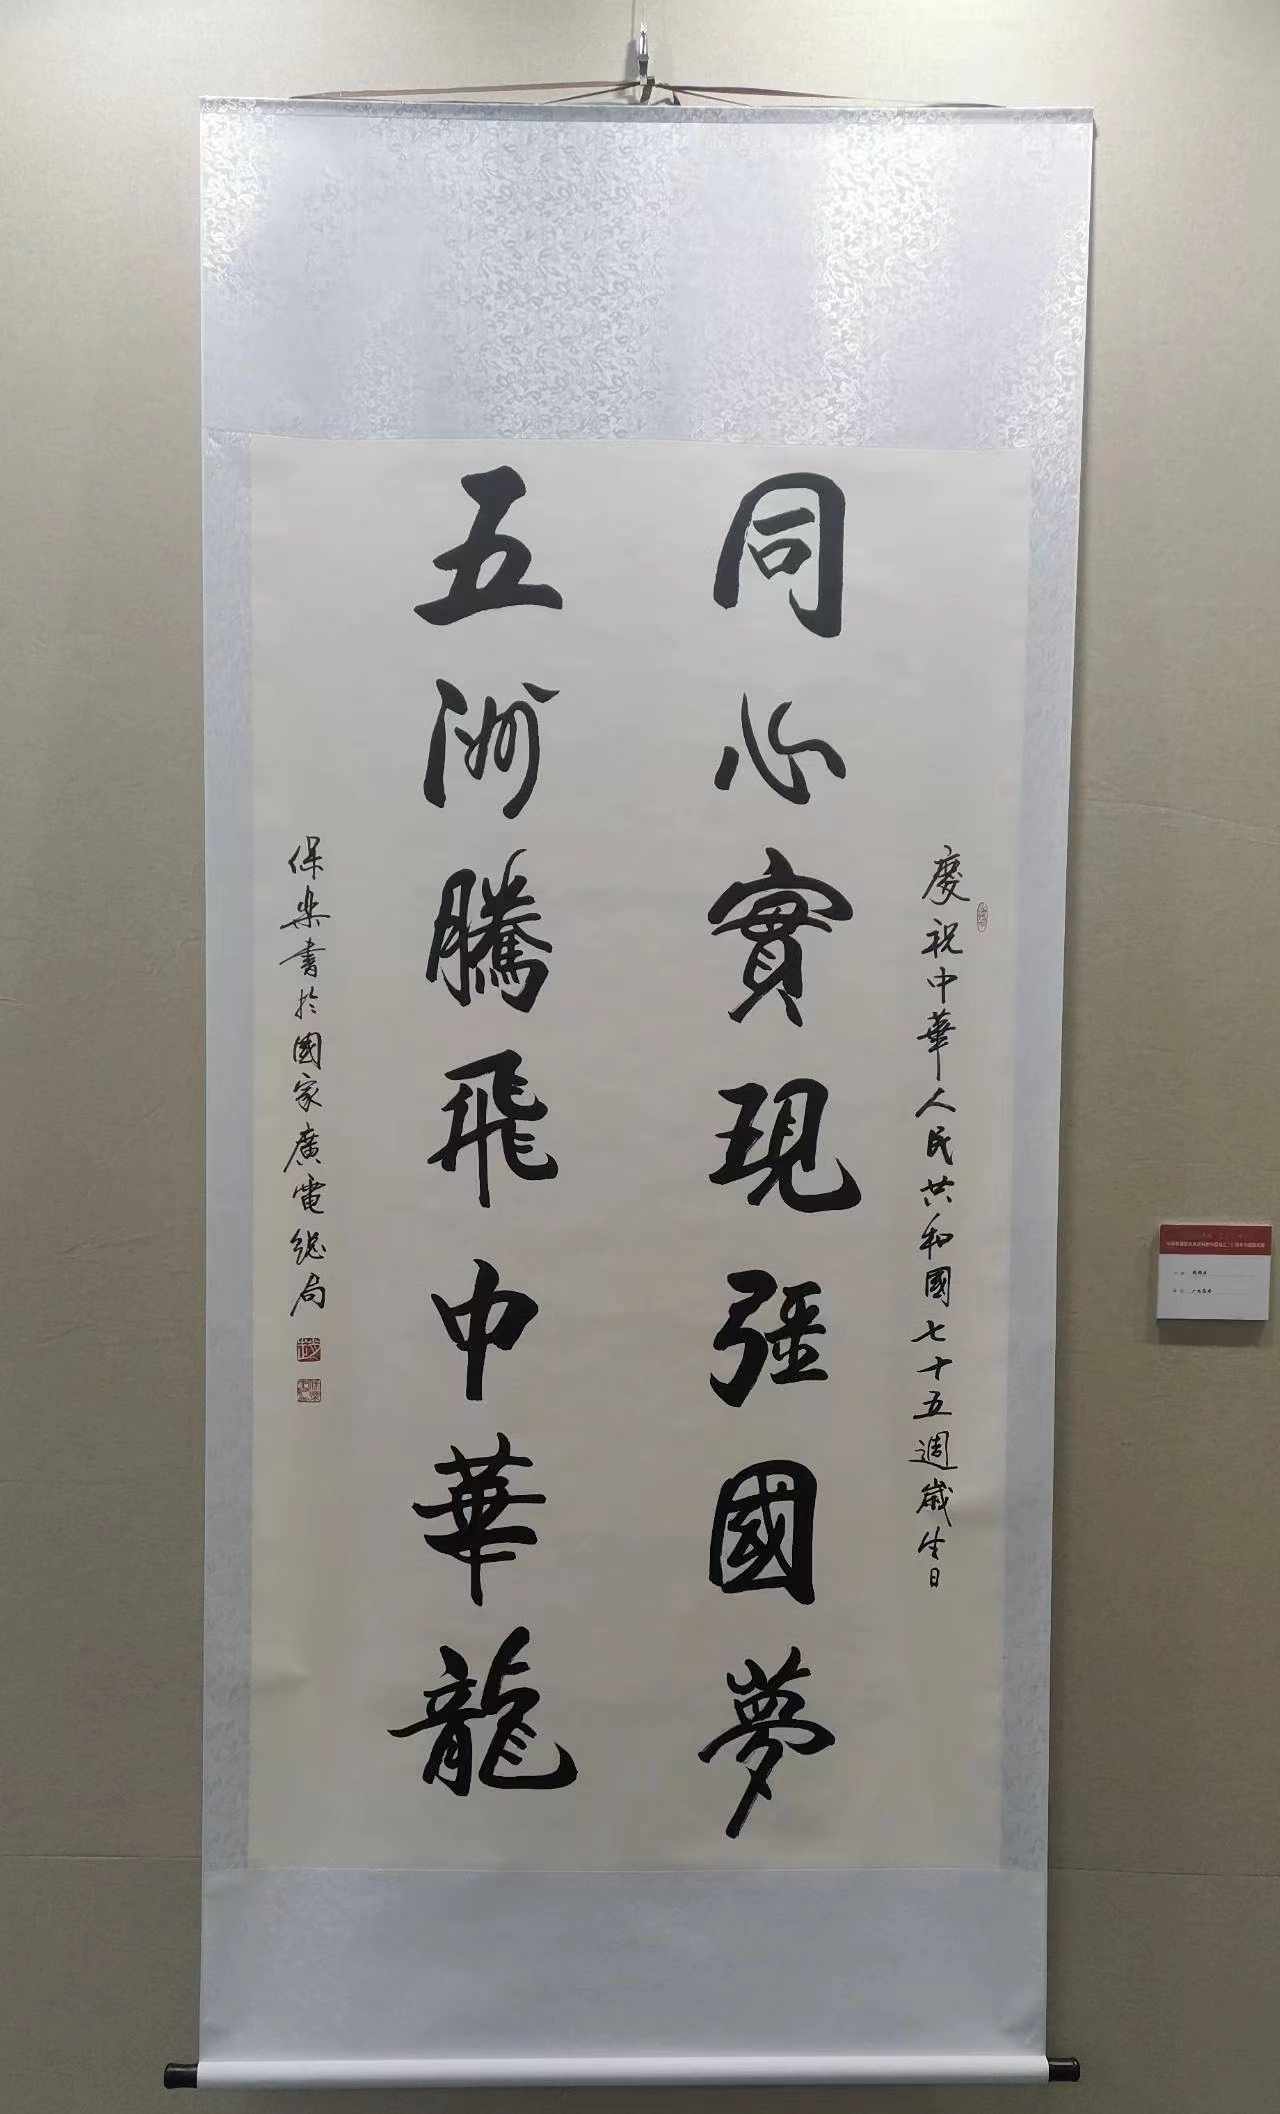 慶祝中華人民共和國七十五週歲生日
同心實現强國夢
五洲騰飛中華龍
保樂書於國家廣電總局